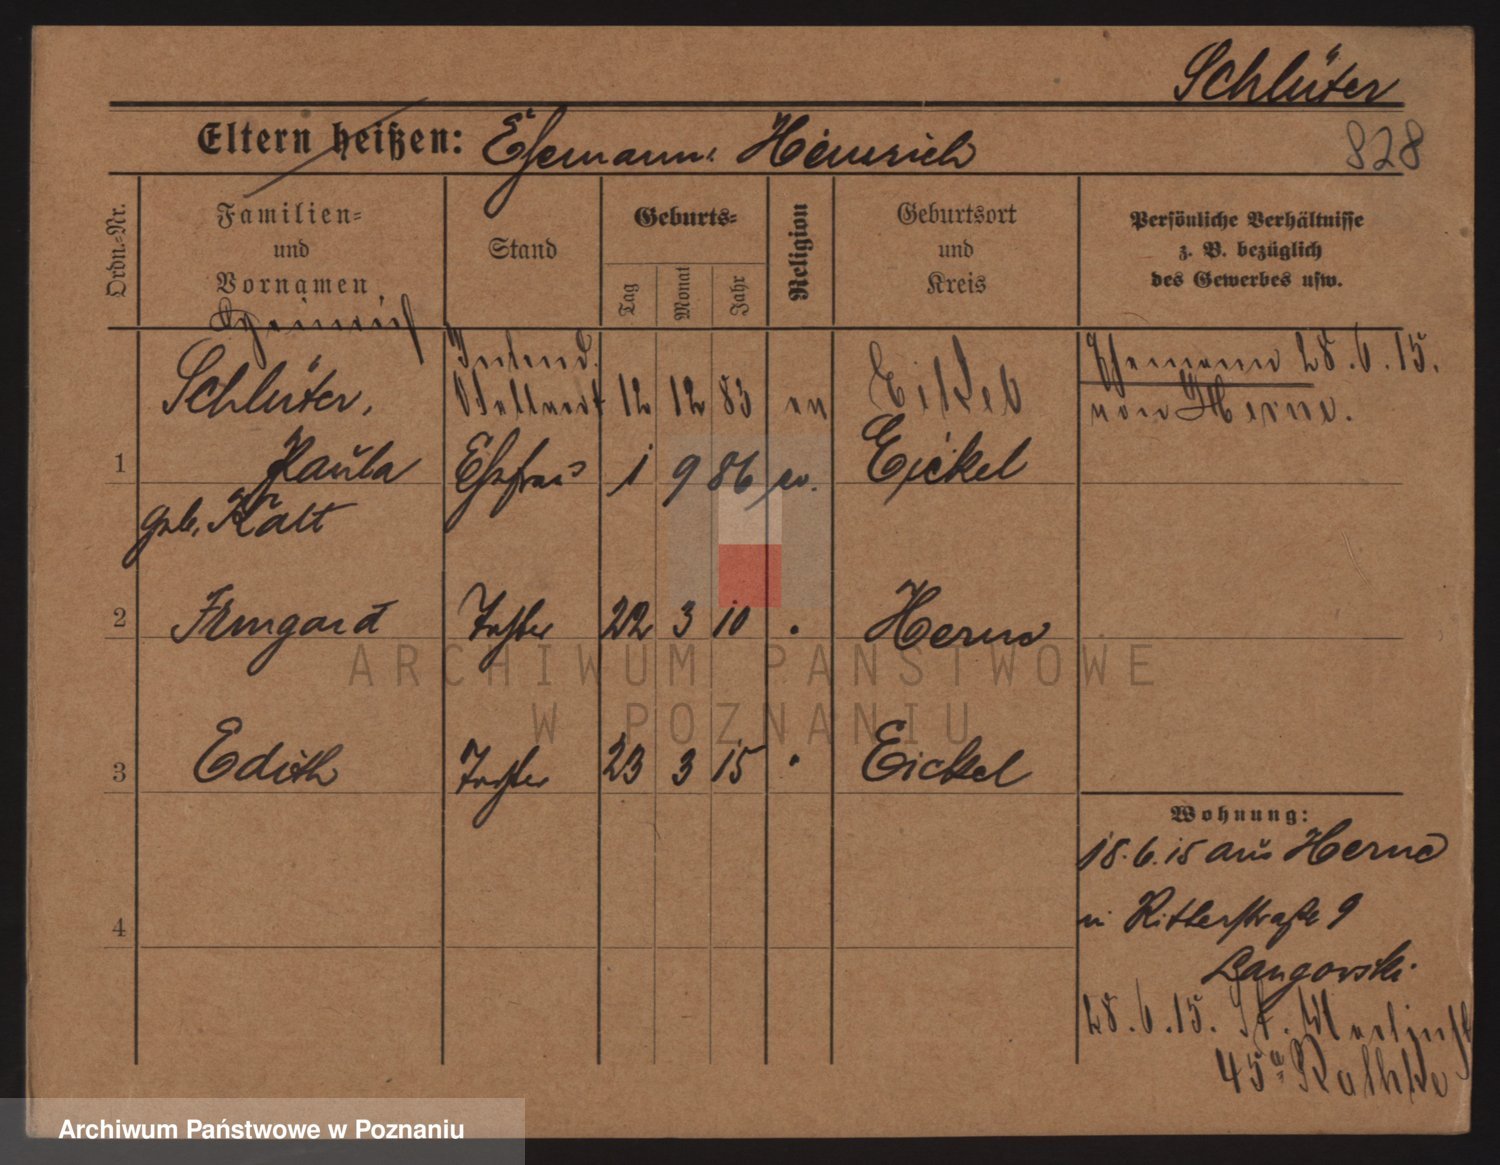 Schlüter
828
Eltern heißen: Ehemann: Heinrich
Ordn.-Nr.
Familien-
und
Vornamen
Stand
Geburts-
Tag
Monat
Jahr
Religion
Geburtsort
und
Kreis
Persönliche Verhältnisse
z. B. bezüglich
des Gewerbes usw.
Heinrich
Schlüter, 12 12 83 ev Eickel
Ehemann 28.6.15.
von Herne.
1 Paula Ehefrau 1 9 86 ev. Eickel
geb. Kalt
2 Irmgard Tochter 22 3 10 " Herne
3 Edith Tochter 23 3 15 " Eickel
4
Wohnung:
18.6.15 aus Herne
Ritterstraße 9
Langowski.
28.6.15. St. Martinstr
45a Rathke
ARCHIWUM PAŃSTWOWE
W POZNANIU
Archiwum Państwowe w Poznaniu